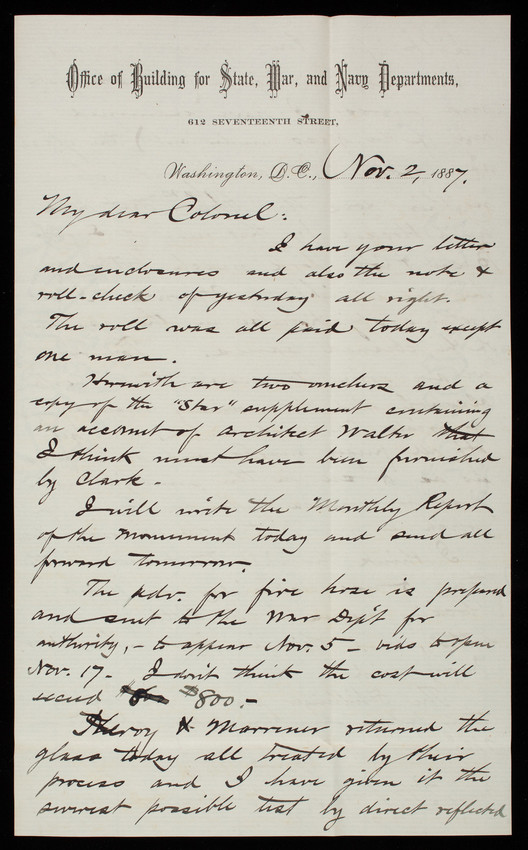 Office of Building for State, War, and Navy Departments,
612 SEVENTEENTH STREET,
Washington, D.C., Nov. 2, 1887.
My dear Colonel:
I have your letter
and enclosures and also the note &
roll-check of yesterday all right.
The roll was all paid today except
one man.
Herewith are two vouchers and a
copy of the "Star" supplement containing
an account of Architect Walter that
I think must have been furnished
by Clark.
I will write the Monthly Report
of the Monument today and send all
forward tomorrow.
The adv. for fire hose is prepared
and sent to the War Dep't for
authority, - to appear Nov. 5 - bids to open
Nov. 17 - I don't think the cost will
exceed $800.-
& Marriner returned the
glass today all treated by their
process and I have given it the
severest possible test by direct reflected